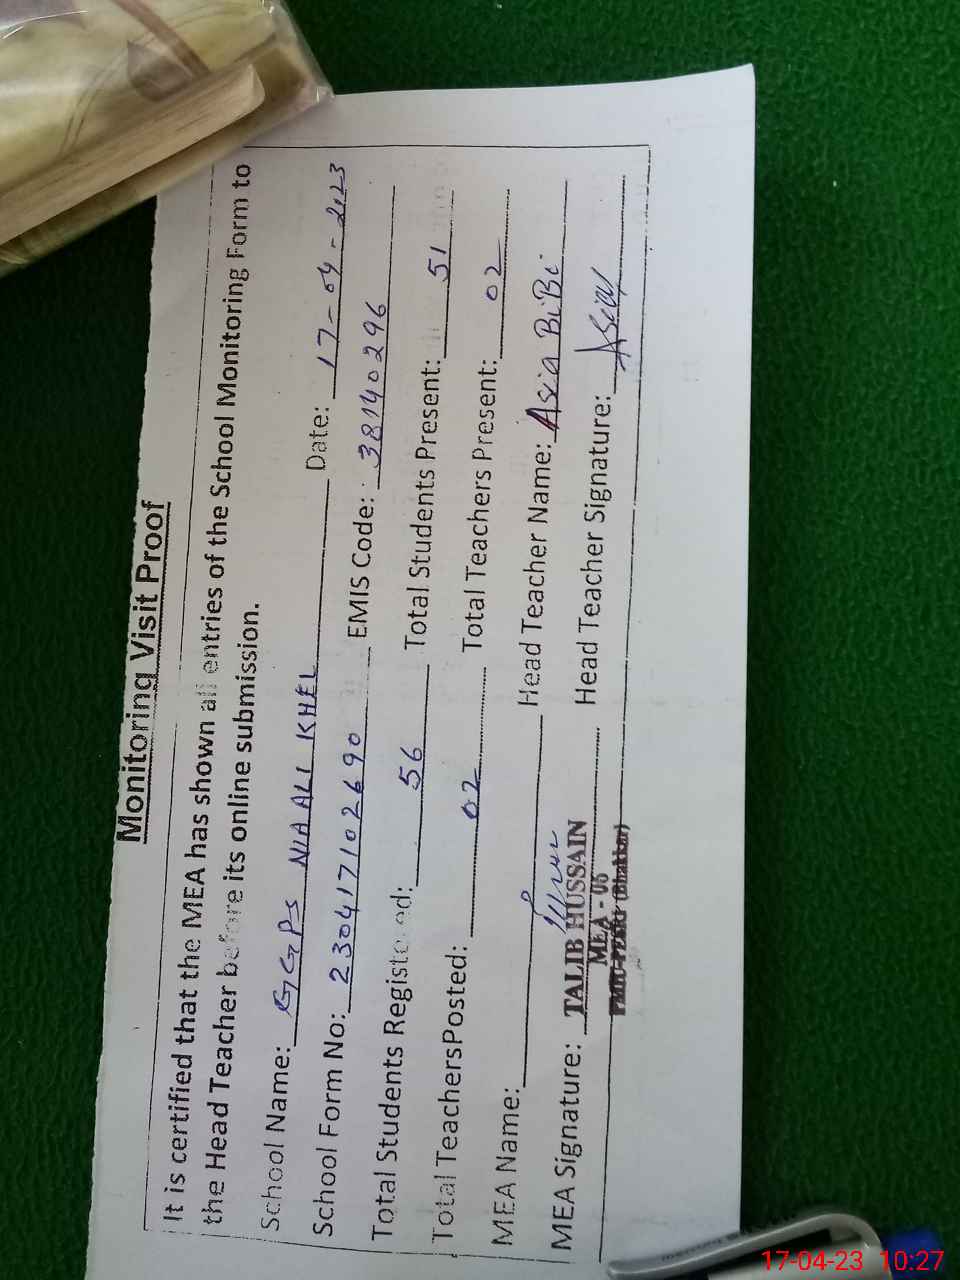 Monitoring Visit Proof
It is certified that the MEA has shown all entries of the School Monitoring Form to
the Head Teacher before its online submission.
School Name: GGPS NIA ALI KHEL Date: 17-04-2023
School Form No: 2304171102690 EMIS Code: 38140296
Total Students Registered: 56 Total Students Present: 51
Total TeachersPosted: 02 Total Teachers Present: 02
MEA Name: Head Teacher Name: Asia BiBi
MEA Signature: Head Teacher Signature: Asia
TALIB HUSSAIN
MEA - 06
(Bhakkar)
17-04-23 10:27